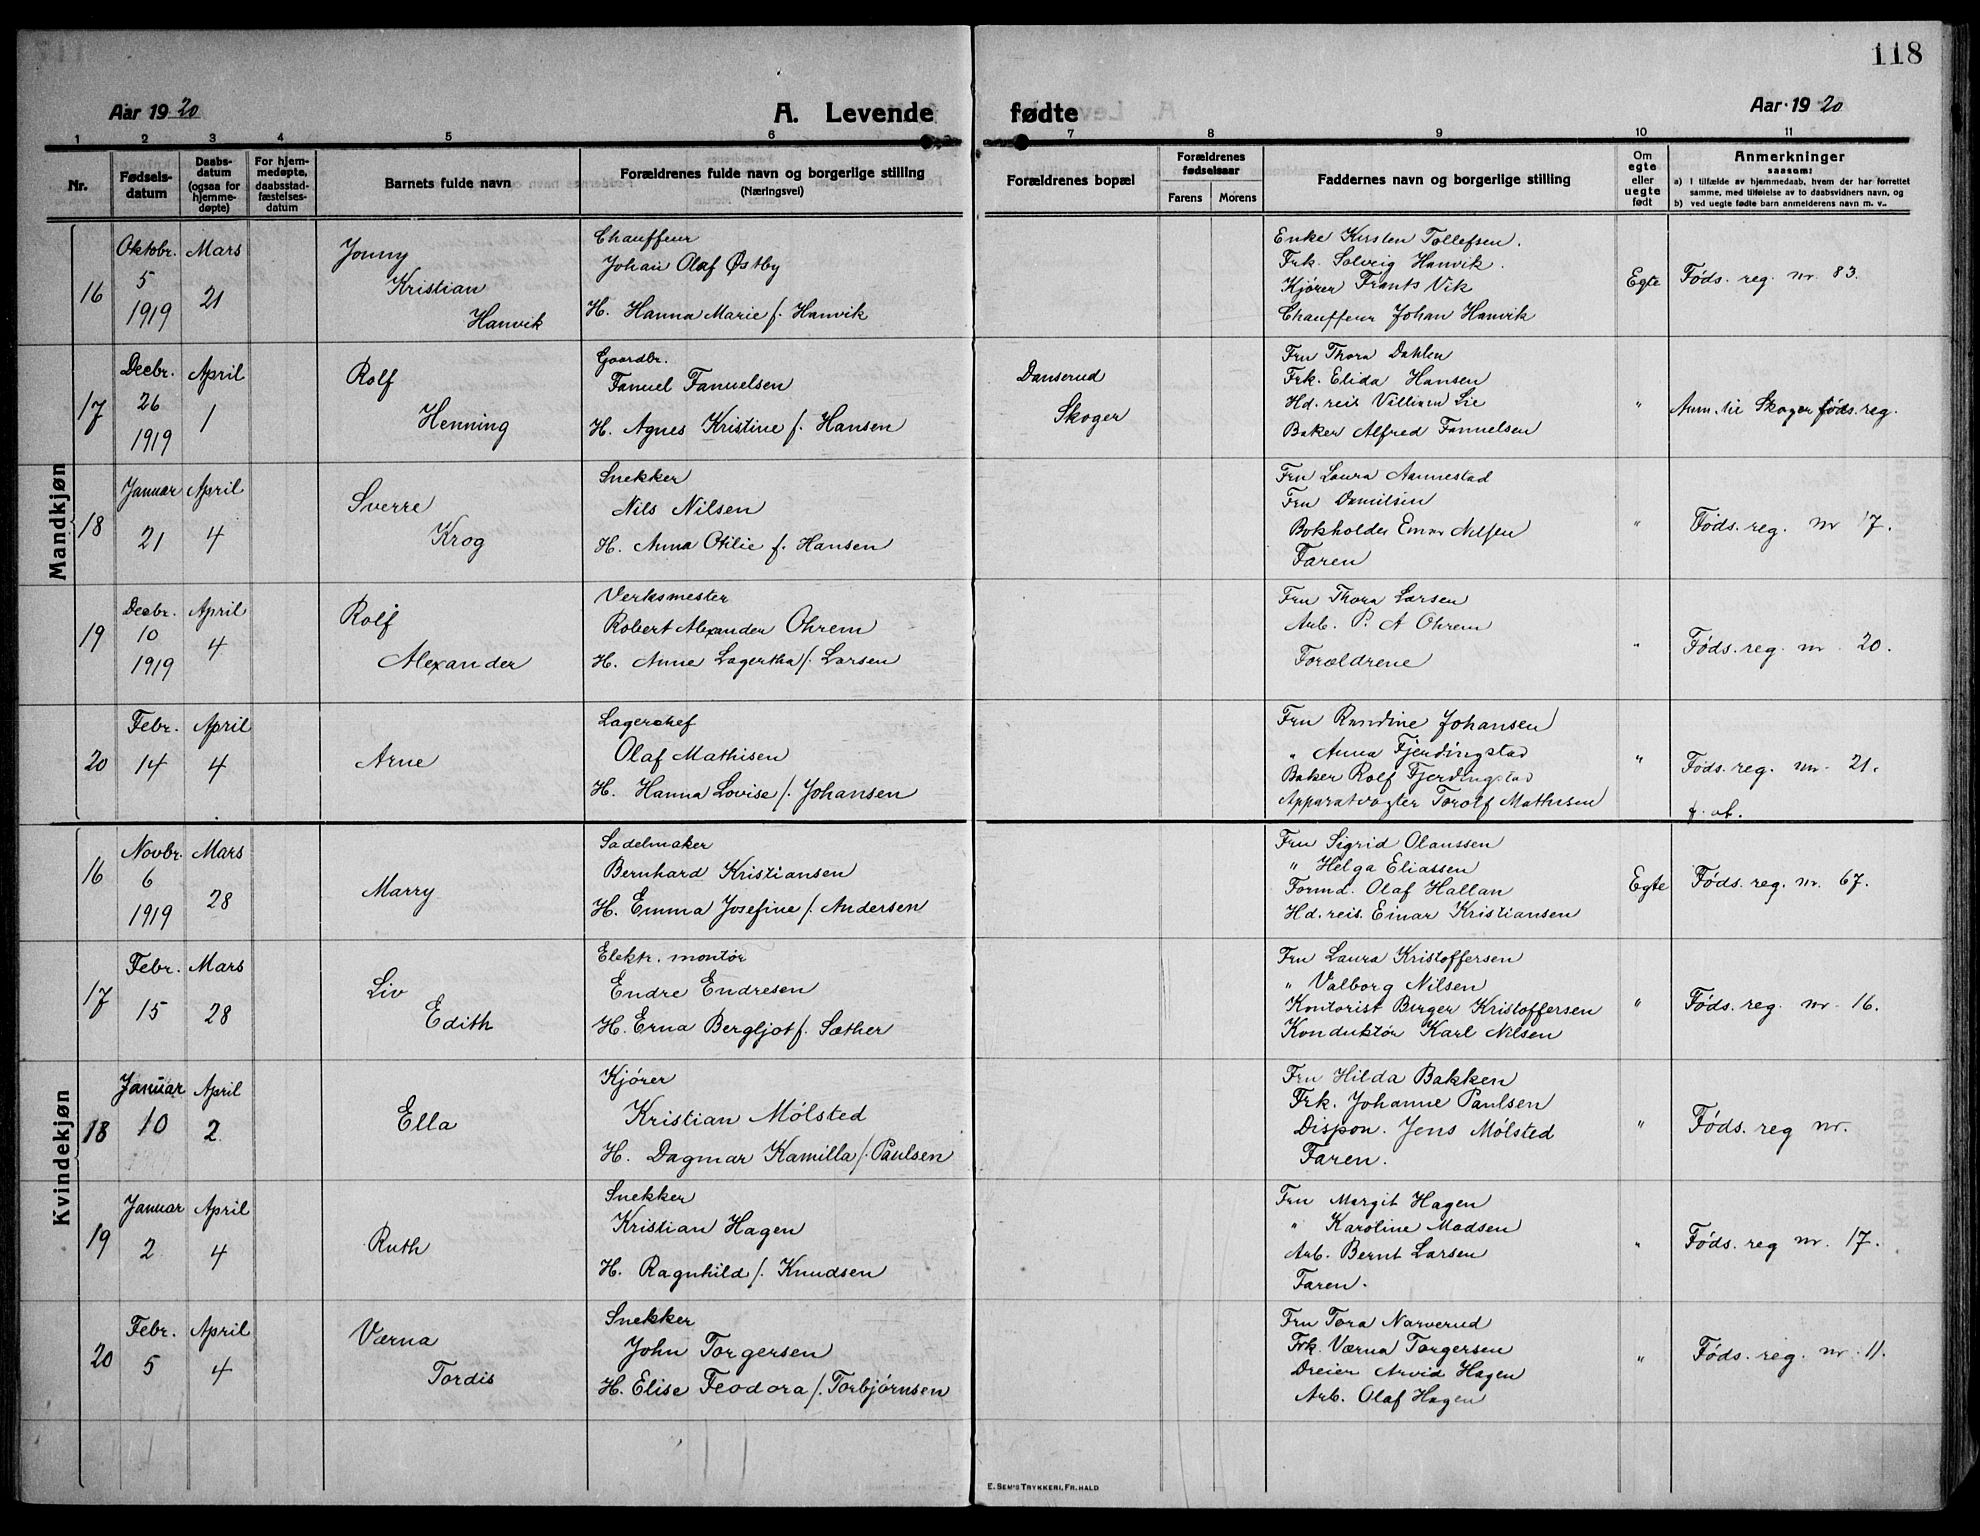 118
Aar 1920
A. Levende
fødte
Aar 1920
1 2 3 4 5 6 7 8 9 10 11
Nr.
Fødsels-
datum
Daabs-
datum
(ogsaa for
hjemme-
døpte)
For hjem-
medøpte,
daabsstad-
fæstelses-
datum
Barnets fulde navn
Forældrenes fulde navn og borgerlige stilling
(Næringsvei)
Forældrenes bopæl
Forældrenes
fødselsaar
Farens
Morens
Faddernes navn og borgerlige stilling
Om
egte
eller
uegte
født
Anmerkninger
saasom:
a) I tilfælde av hjemmedaab, hvem der har forrettet
samme, med tilføielse av to daabsvidners navn, og
b) ved uegte fødte barn anmelderens navn m. v..
Mandkjøn
16
Oktobr.
5
1919
Mars
21
Jonny
Kristian
Hanvik
Chauffeur
Johan Olaf Østby
H. Hanna Marie f. Hanvik
Enke Kirsten Tollefsen.
Frk. Solveig Hanvik.
Kjører Frants Vik
Chauffeur Johan Hanvik
Egte
Føds. reg. nr. 83.
17
Decbr.
26
1919
April
1
Rolf
Henning
Gaardbr.
Fanuel Fanuelsen
H. Agnes Kristine f. Hansen
Danserud
Skoger
Fru Thora Dahlen
Frk. Elida Hansen
Hd. reis Villiam Lie
Baker Alfred Fanuelsen
"
Anm. til Skoger føds. reg.
18
Januar
21
April
4
Sverre
Krog
Snekker
Nils Nilsen
H. Anna Otilie f. Hansen
Fru Laura Aannestad
Fru Danielsen
Bokholder Einar Nilsen
Faren
"
Føds. reg. nr 17.
19
Decbr.
10
1919
April
4
Rolf
Alexander
Verksmester
Robert Alexander Ohrem
H. Anne Lagertha f. Larsen
Fru Thora Larsen
Arb. P. A Ohrem
Forældrene
"
Føds. reg. nr. 20.
20
Febr.
14
April
4
Arne
Lagerchef
Olaf Mathisen
H. Hanna Lovise f. Johansen
Fru Randine Johansen
" Anna Fjerdingstad
Baker Rolf Fjerdingstad
Apparatvogter Torolf Mathisen
"
Føds. reg. nr. 21.
Kvindekjøn
16
Novbr.
6
1919
Mars
28
Marry
Sadelmaker
Bernhard Kristiansen
H. Emma Josefine f. Andersen
Fru Sigrid Olaussen
" Helga Eliassen
Formd. Olaf Hallan
Hd. reis. Einar Kristiansen
Egte
Føds. reg. nr. 67.
17
Febr.
15
Mars
28
Liv
Edith
Elektr. montør
Endre Endresen
H. Erna Bergljot f. Sæther
Fru Laura Kristoffersen
" Valborg Nilsen
Kontorist Birger Kristoffersen
Konduktør Karl Nilsen
"
Føds. reg. nr. 16.
18
Januar
10
April
2
Ella
Kjører
Kristian Mølsted
H. Dagmar Kamilla f. Paulsen
Fru Hilda Bakken
Frk. Johanne Paulsen
Dispon. Jens Mølsted
Faren.
"
Føds. reg nr.
19
Januar
2
April
4
Ruth
Snekker
Kristian Hagen
H. Ragnhild f. Knudsen
Fru Margit Hagen
" Karoline Madsen
Arb. Bernt Larsen
Faren.
"
Føds. reg nr. 17.
20
Febr.
5
April
4
Værna
Tordis
Snekker
John Torgersen
H. Elise Feodora f. Torbjørnsen
Fru Tora Narverud
Frk. Værna Torgersen
Dreier Arvid Hagen
Arb. Olaf Hagen
"
Føds. reg. nr. 11.
E. SEM'S TRYKKERI, FR.HALD